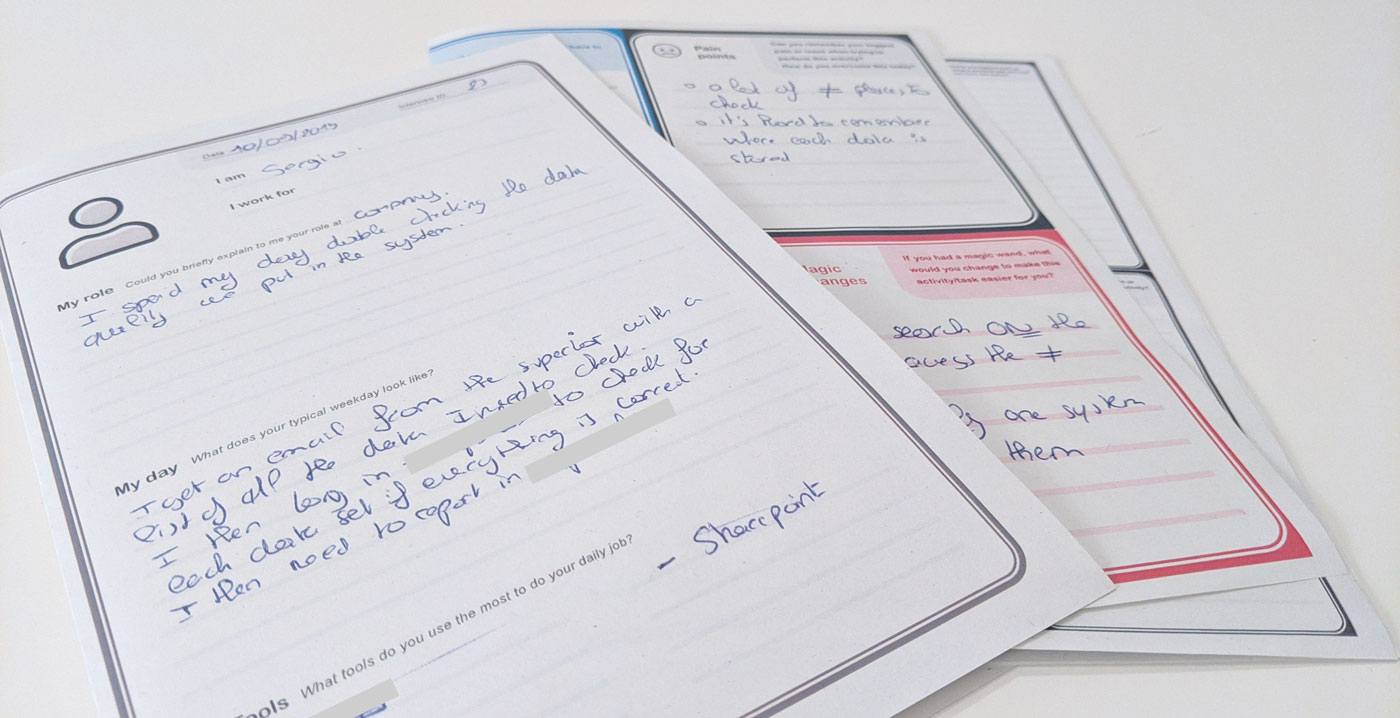 Interview ID 23
Date 10/09/2019
I am Sergio.
I work for
My role Could you briefly explain to me your role at company.
I spend my day double checking the data
quality we put in the system.
My day What does your typical weekday look like?
I get an email from the superior with a
list of all the data I need to check.
I then log in to check for
each data set if everything is correct.
I then need to report in
ools What tools do you use the most to do your daily job?
- Sharepoint
have to
Pain
points
Can you remember your biggest
pain or issue when trying to
perform this activity?
How do you overcome this today?
a lot of ≠ places to
check
it's hard to remember
where each data is
stored
agic
anges
If you had a magic wand, what
would you change to make this
activity/task easier for you?
search ON the
access the ≠
one system
them